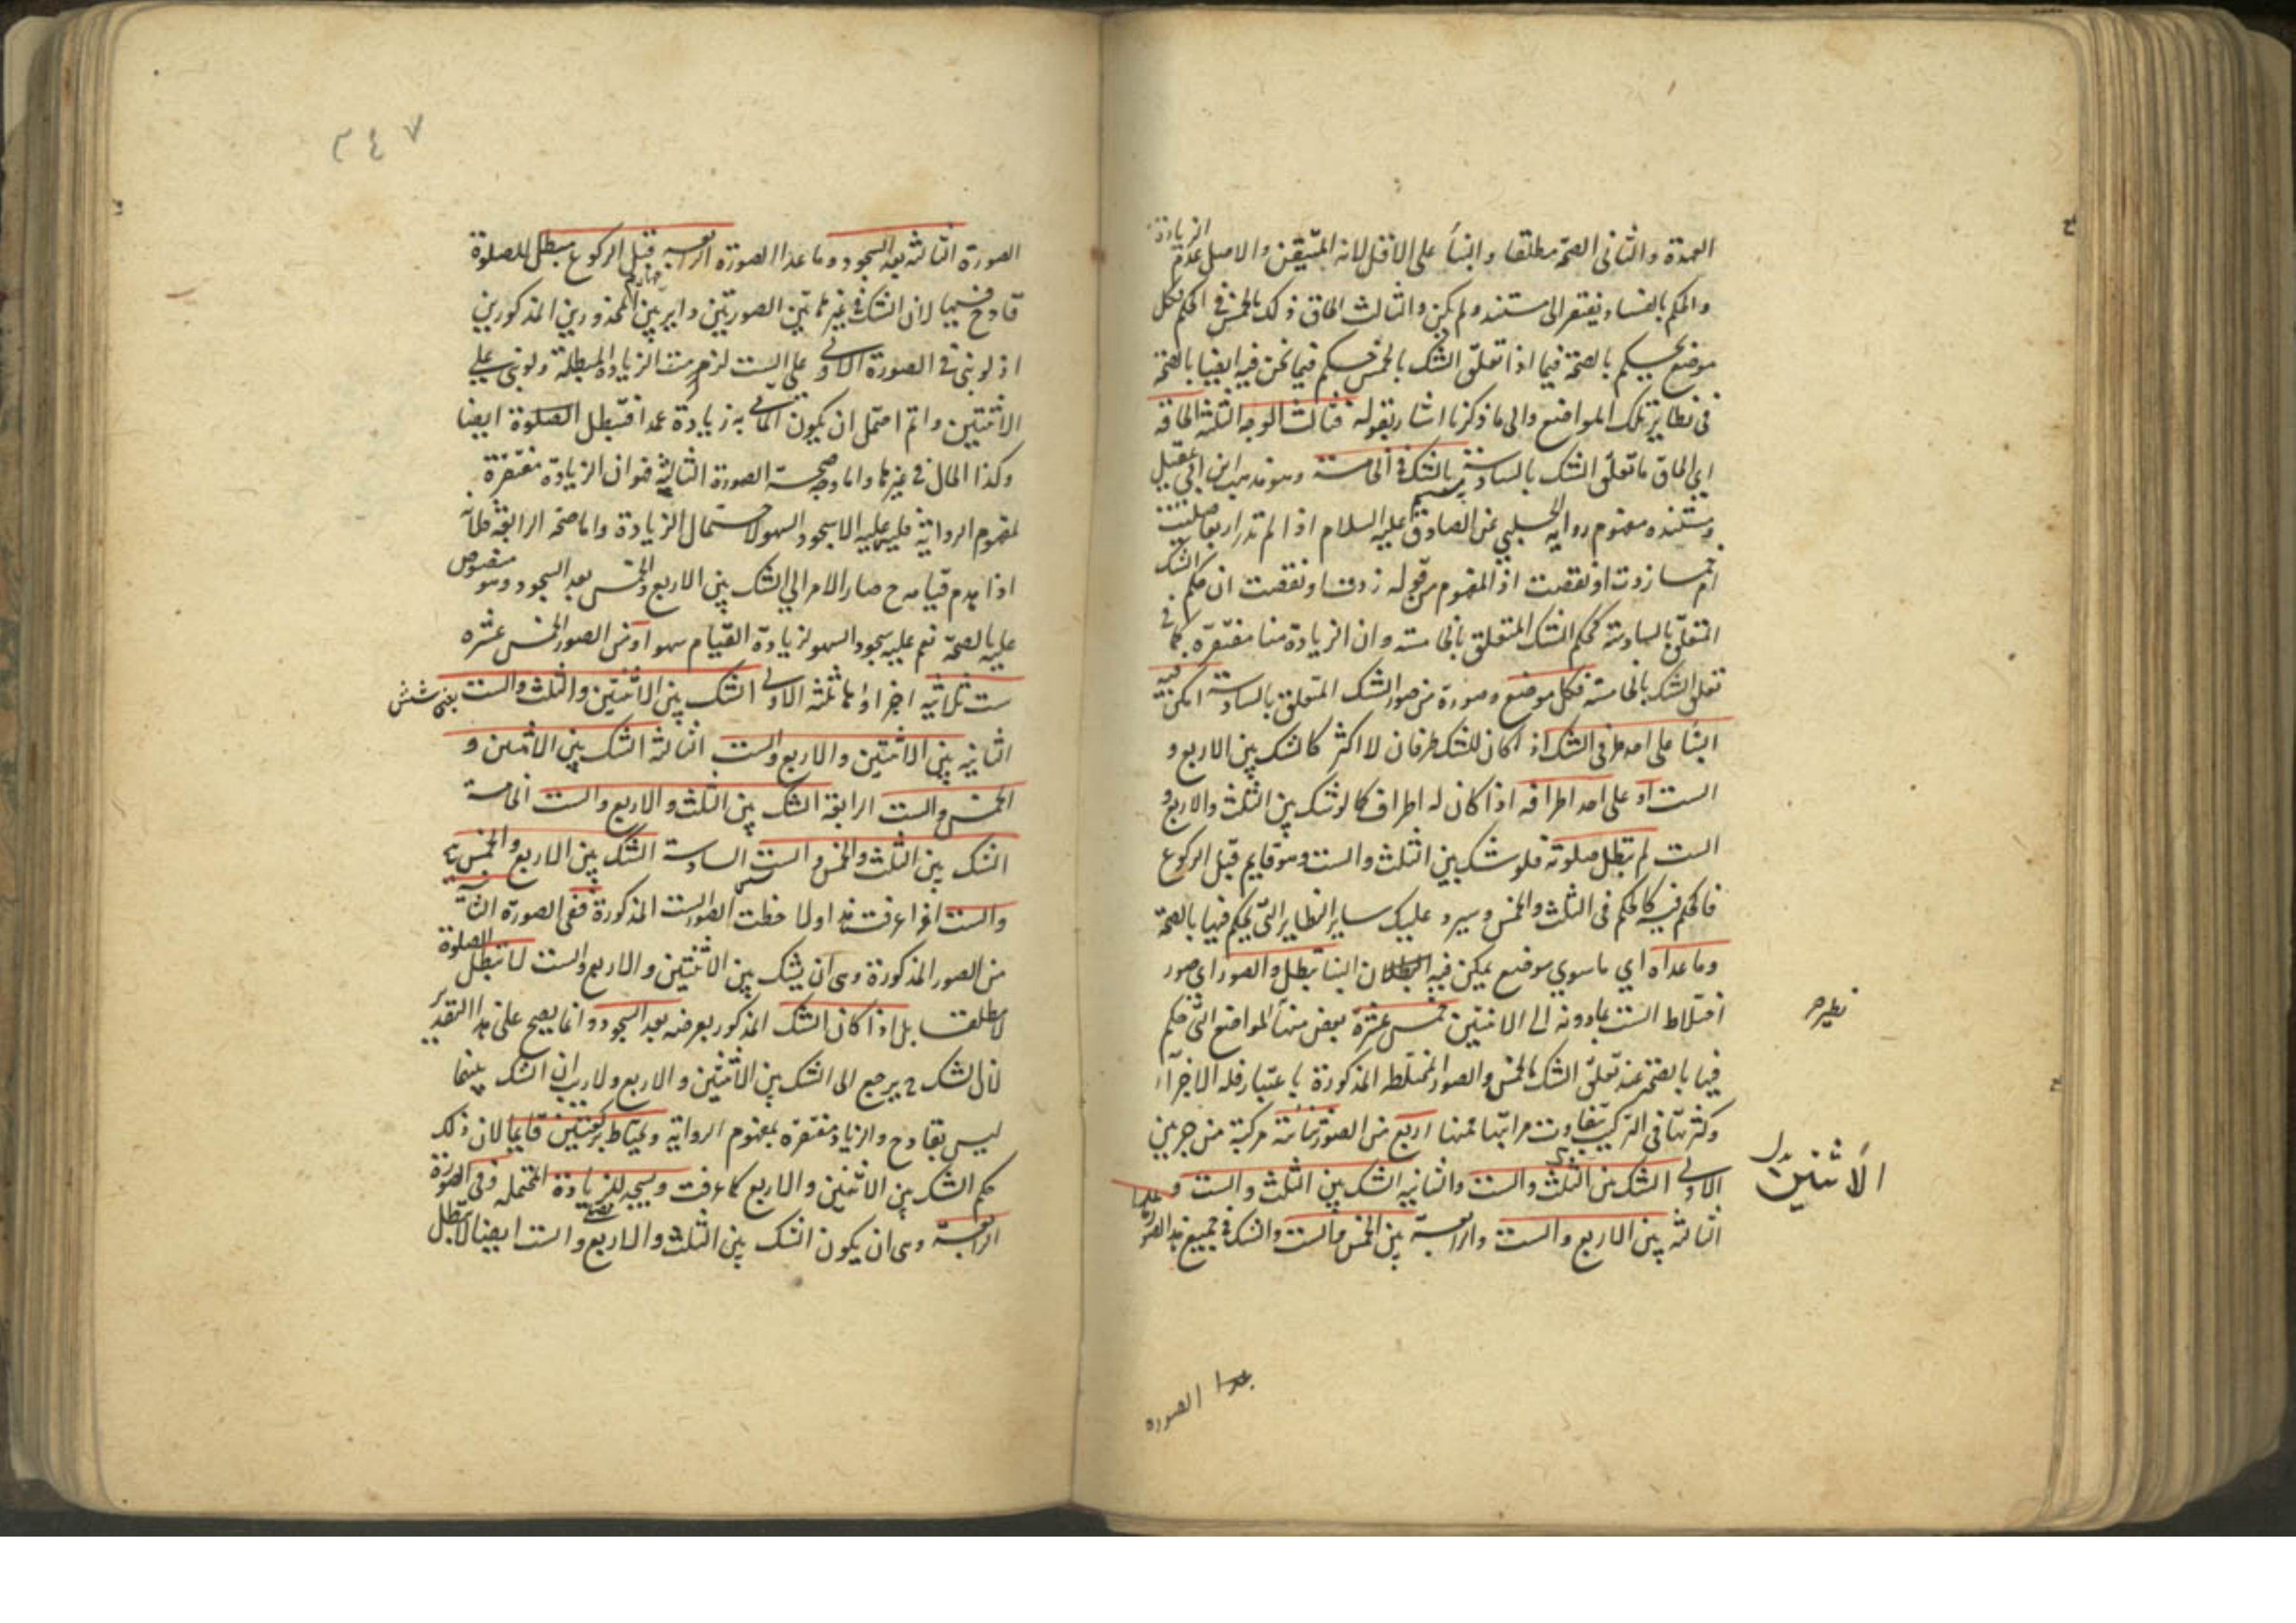 العمدة والثاني الصحة مطلقا والبناء على الاقل لانه المتيقن والاصل عدم الزيادة
والحكم بالفساد يفتقر الى مستند ولم يكن والثالث الحاق ذلك بالخمس في الحكم فكل
موضع يحكم بالصحة فيما اذا تعلق الشك بالخمس حكم فيما نحن فيه ايضا بالصحة
في نظاير تلك المواضع والى ما ذكرنا اشار بقوله فثالث الوجه الثلثة الحاقه
اي الحاق ما تعلق الشك بالسادسة بالشك في الخامسة وهو مذهب ابن ابي عقيل
ومستنده مفهوم رواية الحلبي عن الصادق عليه السلام اذا لم تدر اربعا صليت
ام خمسا زدت او نقصت اذ المفهوم من قوله زدت او نقصت ان حكم الشك
المتعلق بالسادسة كحكم الشك المتعلق بالخامسة وان الزيادة هنا مغتفرة كما في
تعلق الشك بالخامسة فكل موضع وصورة من صور الشك المتعلق بالسادسة امكن فيه
البناء على احد طرفي الشك اذ كان للشك طرفان لا اكثر كالشك بين الاربع و
الست او على احد اطرافه اذا كان له اطراف كما لو شك بين الثلث والاربع و
الست لم تبطل صلوته فلو شك بين الثلث والست وهو قايم قبل الركوع
فالحكم فيه كالحكم في الثلث والخمس وسيرد عليك ساير النظاير التي يحكم فيها بالصحة
وما عداه اي ما سوي موضع يمكن فيه البناء تبطل والصور اي صور
اختلاط الست بما دونه الى الاثنتين خمس عشرة بعض منها المواضع التي حكم
نظيره
فيها بالصحة عند تعلق الشك بالخمس والصور المختلطة المذكورة باعتبار قلة الاجزاء
وكثرتها في التركيب تفاوت مراتبها فمنها اربع من الصور ثنائية مركبة من جزئين
الاولى الشك بين الثلث والست والثانية الشك بين الثلث والست و
الاثنين بدل
الثالثة بين الاربع والست والرابعة بين الخمس والست والشك في جميع هذه الصور
عدا الصورة
٣٤٧
الصورة الثالثة بعد السجود وما عدا الصورة الرابعة قبل الركوع مبطل للصلوة
قادح فيها لان الشك في غير هاتين الصورتين داير بين المحذورين المذكورين
اذ لو بنى في الصورة الاولى على الست لزم الزيادة المبطلة ولو بنى على
الاثنتين واتم احتمل ان يكون المأتي به زيادة عمدا فتبطل الصلوة ايضا
وكذا الحال في غيرها واما وجه صحة الصورة الثالثة فهو ان الزيادة مغتفرة
لمفهوم الرواية فليس عليه الا سجود السهو لاحتمال الزيادة واما صحة الرابعة فلانه
اذا هدم قيامه ح صار الامر الى الشك بين الاربع والخمس بعد السجود وهو منصوص
عليه بالصحة نعم عليه سجود السهو لزيادة القيام سهوا ومن الصور الخمس عشرة
ست ثلاثية اجزاءها ثلثة الاولى الشك بين الاثنتين والثلث والست
الثانية بين الاثنتين والاربع والست الثالثة الشك بين الاثنتين و
الخمس والست الرابعة الشك بين الثلث والاربع والست الخامسة
الشك بين الثلث والخمس والست السادسة الشك بين الاربع والخمس
والست اذا عرفت هذا ولاحظت الصور الست المذكورة ففي الصورة الثانية
من الصور المذكورة وهى ان يشك بين الاثنتين والاربع والست لا تبطل الصلوة
مطلقا بل اذا كان الشك المذكور بعرضه بعد السجود وانما يصح على هذا التقدير
لان الشك ح يرجع الى الشك بين الاثنتين والاربع ولا ريب ان الشك بينهما
ليس بقادح والزيادة مغتفرة بمفهوم الرواية ويحتاط بركعتين قايما لان ذلك
حكم الشك بين الاثنتين والاربع كما عرفت ويسجد للزيادة المحتملة وفي الصورة
الرابعة وهى ان يكون الشك بين الثلث والاربع والست ايضا لا تبطل